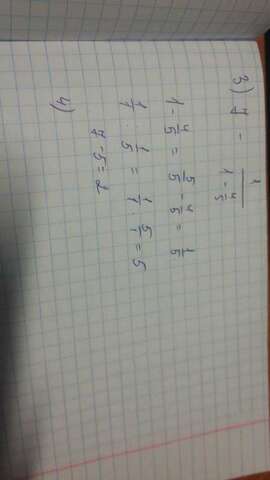 3) 7 - 1/(1 - 4/5)
1 - 4/5 = 5/5 4/5 = 1/5
1/1 : 1/5 = 1/1 · 5/1 = 5
7 - 5 = 2
4)